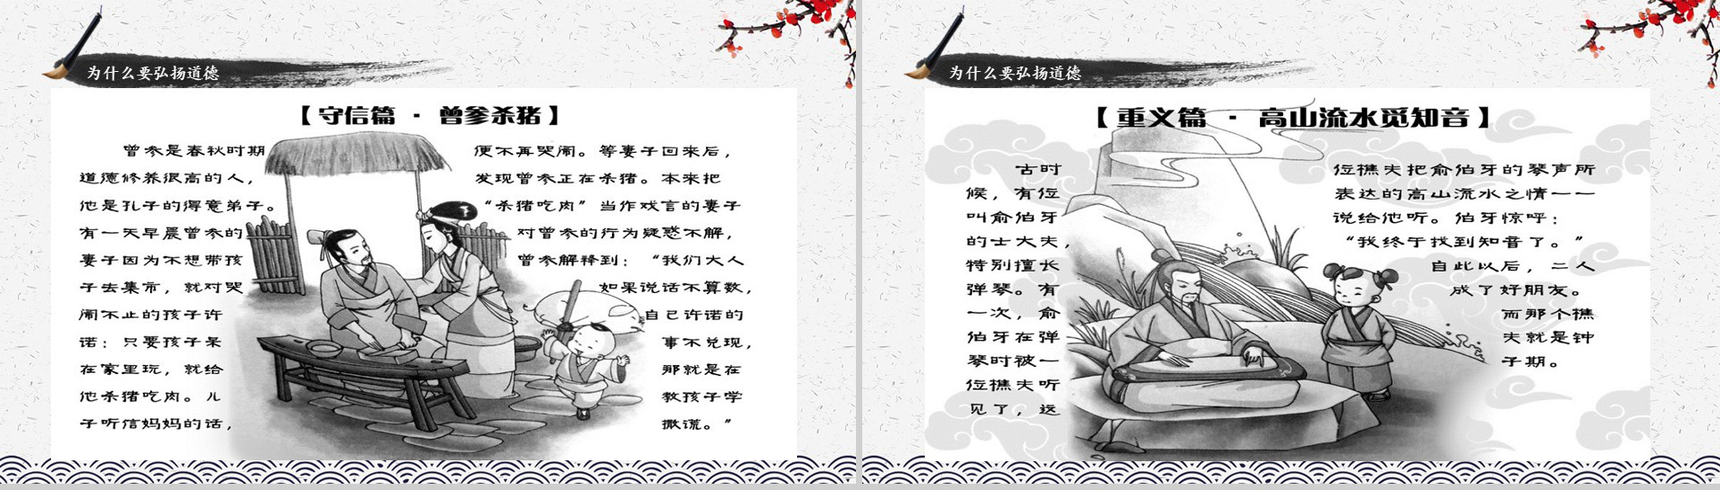 为什么要弘扬道德
【守信篇 · 曾参杀猪】
曾参是春秋时期
道德修养很高的人，
他是孔子的得意弟子。
有一天早晨曾参的
妻子因为不想带孩
子去集市，就对哭
闹不止的孩子许
诺：只要孩子呆
在家里玩，就给
他杀猪吃肉。儿
子听信妈妈的话，
便不再哭闹。等妻子回来后，
发现曾参正在杀猪。本来把
“杀猪吃肉”当作戏言的妻子
对曾参的行为疑惑不解，
曾参解释到：“我们大人
如果说话不算数，
自己许诺的
事不兑现，
那就是在
教孩子学
撒谎。”
为什么要弘扬道德
【重义篇 · 高山流水觅知音】
古时
候，有位
叫俞伯牙
的士大夫，
特别擅长
弹琴。有
一次，俞
伯牙在弹
琴时被一
位樵夫听
见了，这
位樵夫把俞伯牙的琴声所
表达的高山流水之情一一
说给他听。伯牙惊呼：
“我终于找到知音了。”
自此以后，二人
成了好朋友。
而那个樵
夫就是钟
子期。